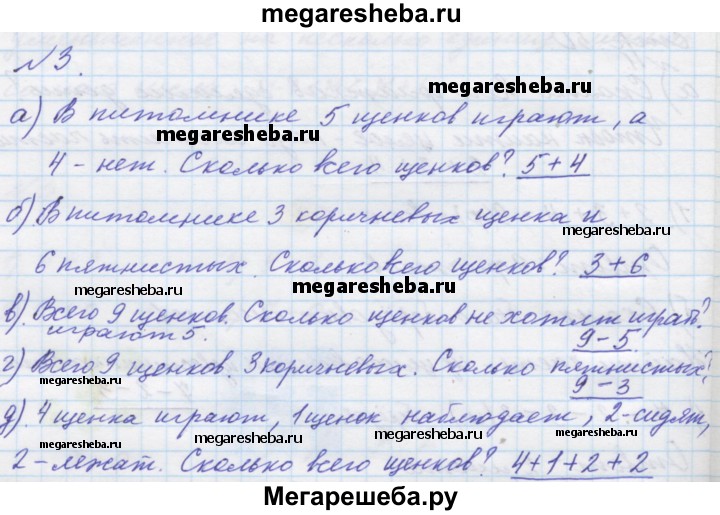 megaresheba.ru
N3.
megaresheba.ru
а) В питомнике 5 щенков играют, а
megaresheba.ru
megaresheba.ru
4 - нет. Сколько всего щенков? 5+4
б) В питомнике 3 коричневых щенка и
megaresheba.ru
6 пятнистых. Сколько всего щенков? 3+6
megaresheba.ru
в). Всего 9 щенков. Сколько щенков не хотят играть?
играют 5.
9-5.
megaresheba.ru
г) Всего 9 щенков. 3 коричневых. Сколько пятнистых?
megaresheba.ru
megaresheba.ru
9-3
д) 4 щенка играют, 1 щенок наблюдает, 2-сидят,
megaresheba.ru
megaresheba.ru
megaresheba.ru
2-лежат. Сколько всего щенков? 4+1+2+2
Мегарешеба.ру